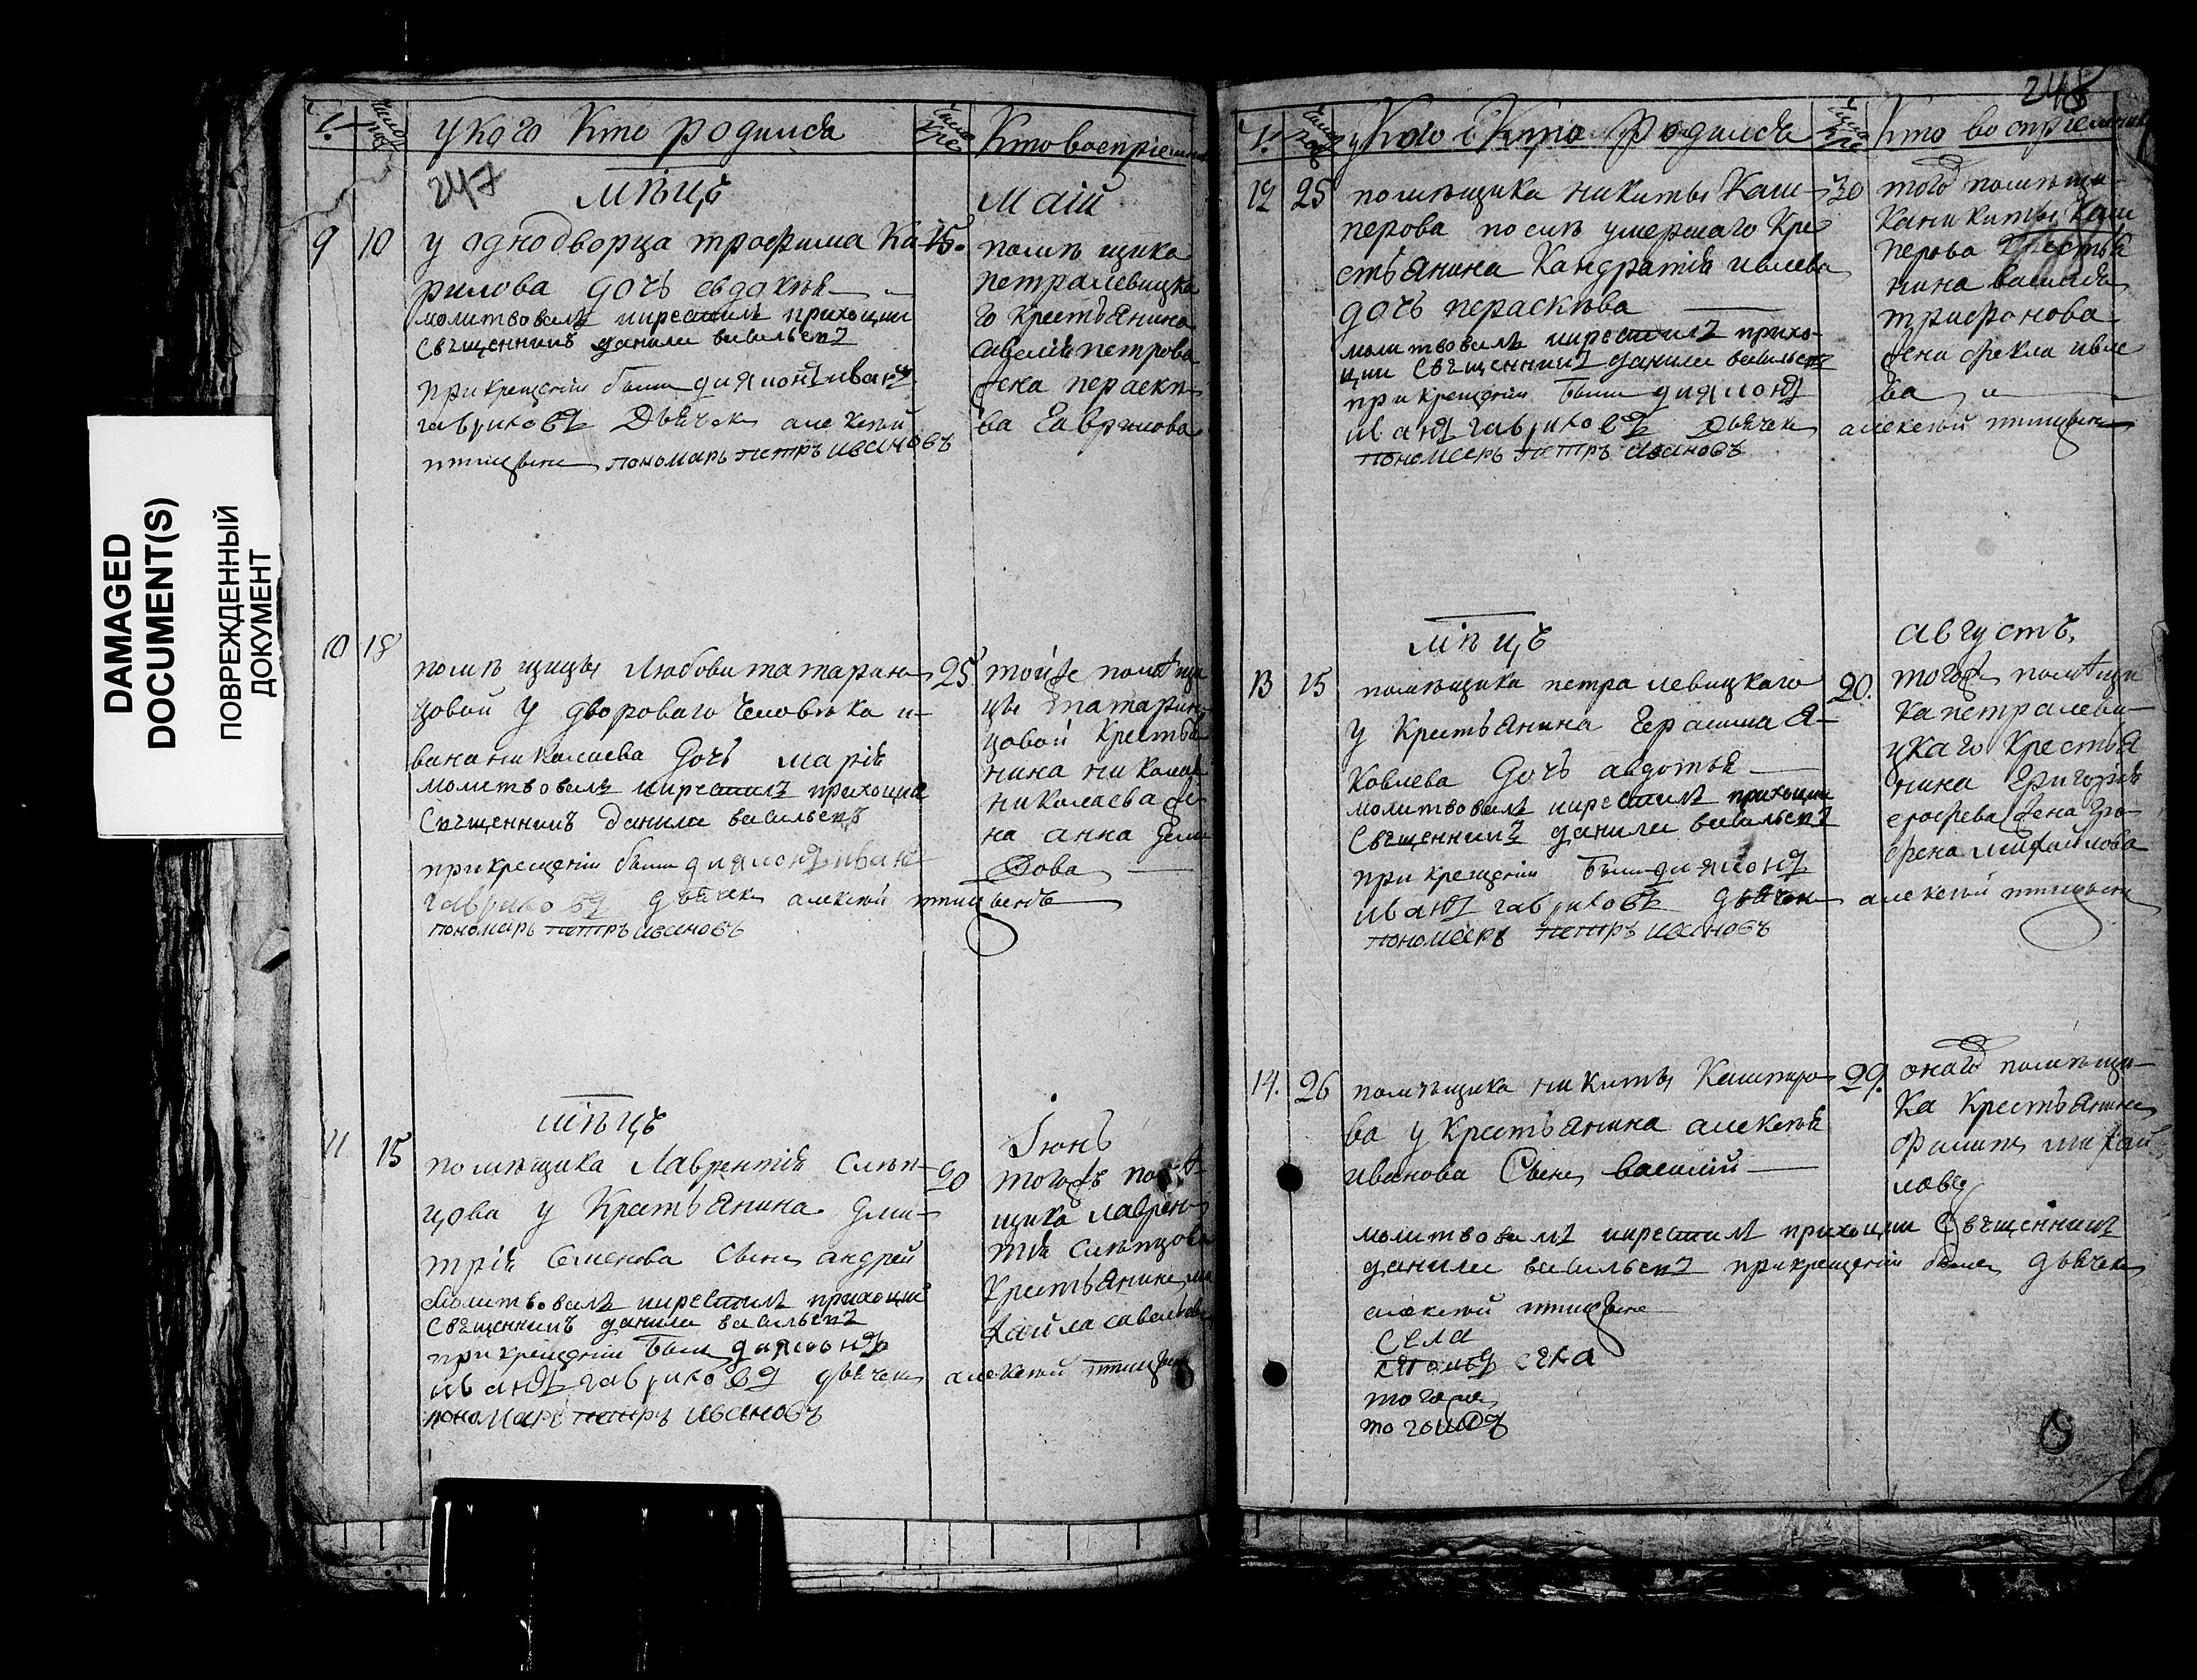 DAMAGED
DOCUMENT(S)
ПОВРЕЖДЕННЫЙ
ДОКУМЕНТ
у кого кто родился
Кто восприемник
247
мѣцъ
маiй
9 10 у однодворца трофима Ки 15.
рилова дочь евдокѣя
молитвовалъ икрестилъ приходцки
Свѣщенникъ данила васильевъ
прикрещенiи были дияконъ иванъ
гавриковъ Дьячек алексѣй
птицынъ пономарь петръ ивановъ
помѣщика
петралевицка
го крестьянина
савелiя петрова
жена пераскѣ
ва Гаврилова
10 18
помѣщицы Любови татарин 25
цовой у двороваго человѣка и
вана николаева дочь марiя
молитвовалъ икрестилъ приходцки
Свѣщенникъ данила васильевъ
прикрещенiи были диякон иван
гавриковъ дьячек алексѣй птицынъ
пономарь петръ ивановъ
тойже помѣщи
цы татарин
цовой крестья
нина николая
николаева же
на анна
мѣцъ
Iюнь
11 15
помѣщика Лаврентiя Слѣп 20
цова у крестьянина дми
трiя Семенова Сынъ андрей
молитвовалъ икрестилъ приходцки
Свѣщенникъ данила васильевъ
прикрещенiи были дияконъ
иванъ гавриковъ дьячек алексѣй птицынъ
пономарь петръ ивановъ
тогожъ
щика лаврен
тiя слѣпцова
крестьянинъ ми
хайла савельевъ
248
у Кого и Кто Родился
кто восприемникъ
12 25 помѣщика никиты Каш 30
перова послѣ умершаго кре
стьянина Кандратiя ивлева
дочь пераскѣва
молитвовалъ икрестилъ прихо
цки Свѣщенникъ данила васильевъ
при крещенiи были дияконъ
иванъ гавриковъ дьячек алексѣй птицынъ
пономарь петръ ивановъ
того помѣщи
ка никиты Каш
перова крестья
нина василья
трифонова
жена фекла ивле
ва
мѣцъ
августъ,
13 15 помѣщика петра левицкаго 20.
у крестьянина Герасима Я
ковлева дочь авдотья
молитвовалъ икрестилъ приходцки
Свѣщенникъ данила васильевъ
при крещенiи были дияконъ
иванъ гавриковъ дьячек алексѣй птицынъ
пономарь петръ ивановъ
тогож помѣщи
ка петра леви
цкаго крестья
нина Григорiя
ерофева жена
михайлова
14. 26 помѣщика никиты Кашперо 29.
ва у крестьянина алексѣя
иванова Сынъ василiй
онаго помѣщи
ка крестьянинъ
филипъ михай
ловъ
молитвовалъ икрестилъ приходцки Свѣщенникъ
данила васильевъ прикрещенiи были дьячек
алексѣй птицынъ
села